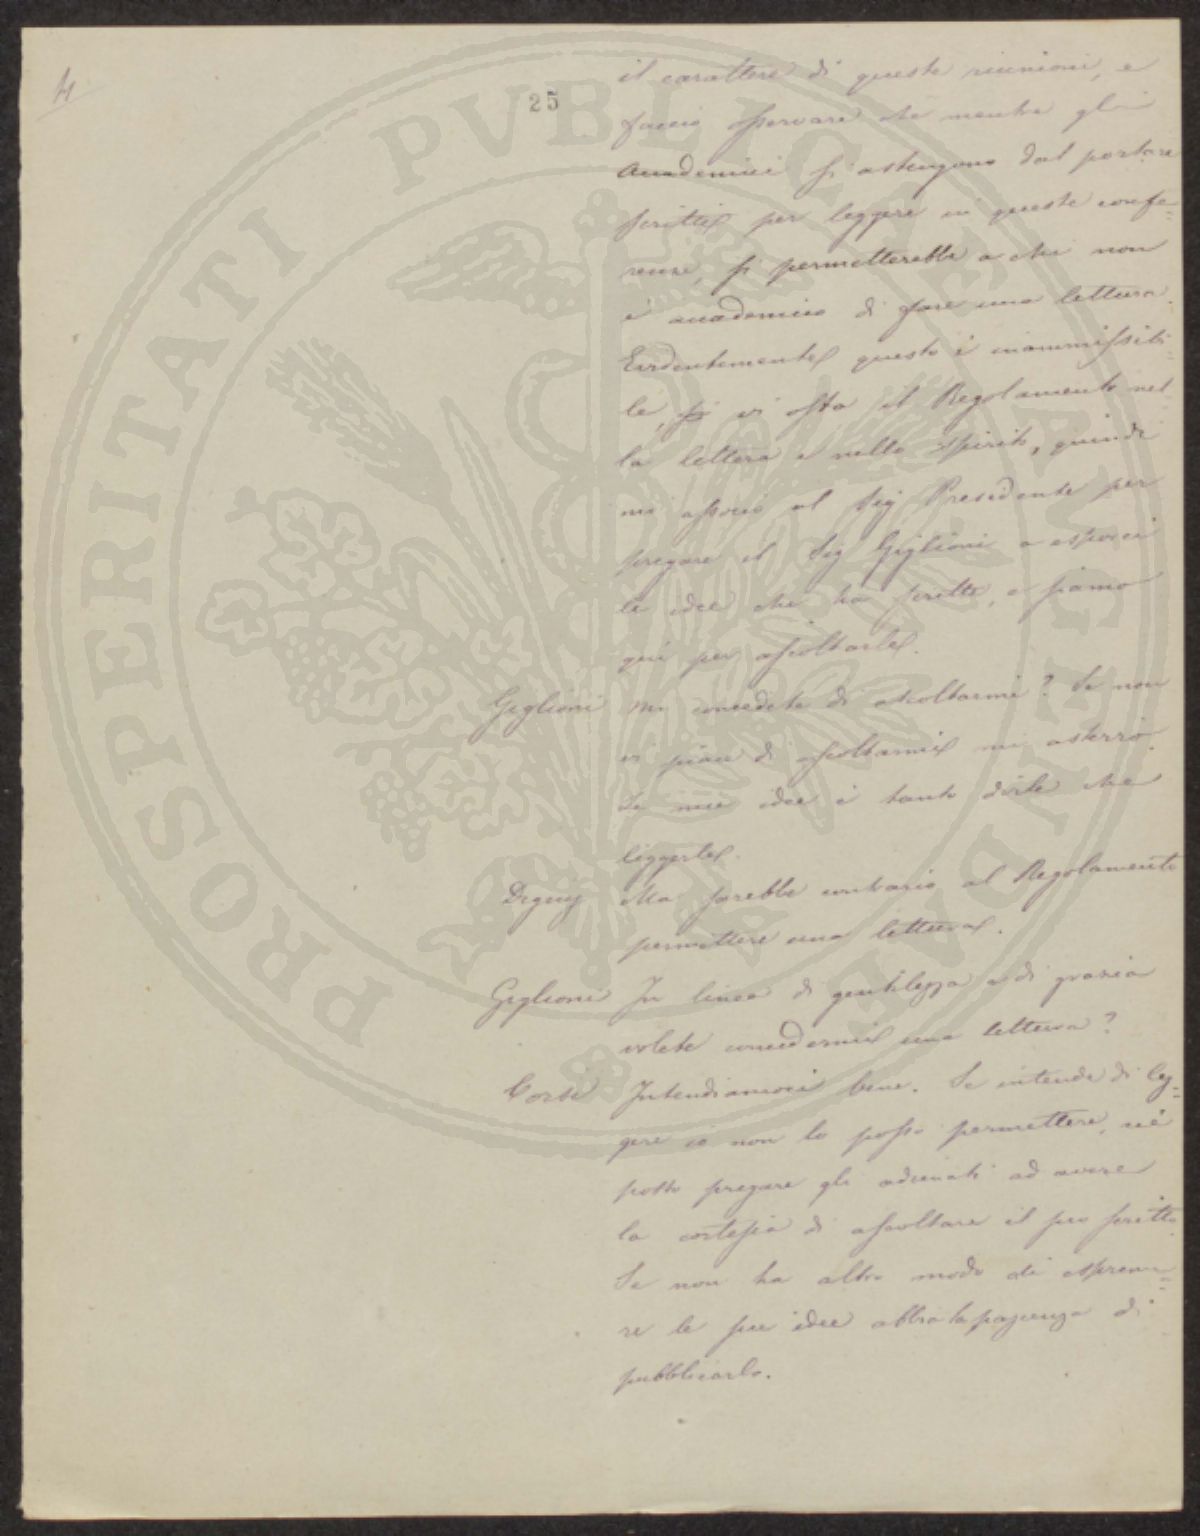 4
25
il carattere di queste riunioni, e
faccio osservare che mentre gli
Accademici si astengono dal portare
scritti per leggere in queste confe=
renze, si permetterebbe a chi non
è accademico di fare una lettura.
Evidentemente questo è inammissibi=
le, vi osta il Regolamento nel=
la lettera e nello spirito, quindi
mi associo al Sig Presidente per
pregare il Sig Giglioni a esporci
le idee che ha scritte, e siamo
qui per ascoltarle.
Giglioni Mi concedete di ascoltarmi? Se non
vi piace di ascoltarmi mi asterrò.
Le mie idee è tanto dirle che
leggerle.
Ma sarebbe contrario al Regolamento
permettere una lettura.
Giglioni In linea di gentilezza e di grazia
volete concedermi una lettura?
Corsi Intendiamoci bene. Se intende di leg=
gere io non lo posso permettere, nè
posso pregare gli adunati ad avere
la cortesia di ascoltare il suo scritto.
Se non ha altro modo di esprime=
re le sue idee abbia la pazienza di
pubblicarlo.
PROSPERITATI PVBLICAE AVGENDAE